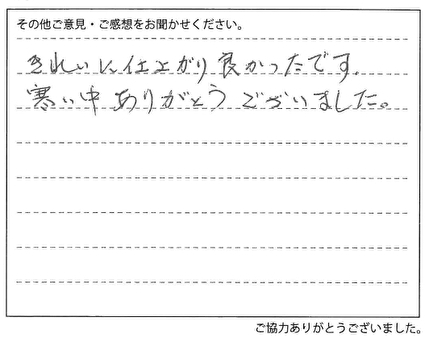 その他ご意見・ご感想をお聞かせください。
きれいに仕上がり良かったです.
寒い中ありがとうございました。
ご協力ありがとうございました。